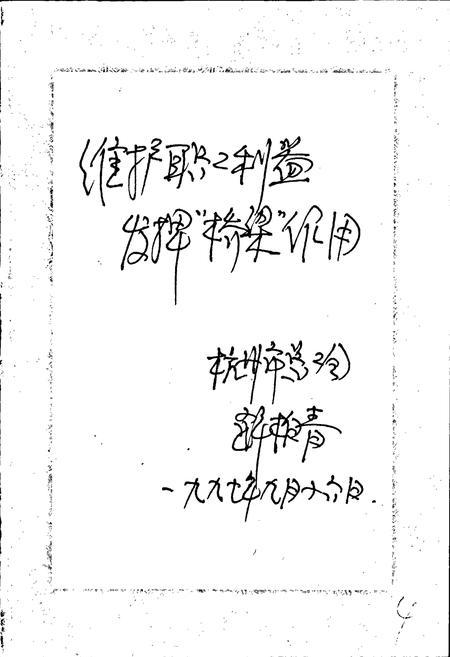 维护职工利益
发挥“桥梁”作用
杭州市总工会
柏青
一九九七年九月十六日.
4